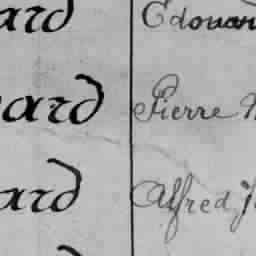 ard Edouard
ard Pierre
ard Alfred